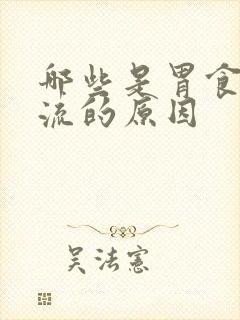 哪些是胃食
流的原因
吴法宪